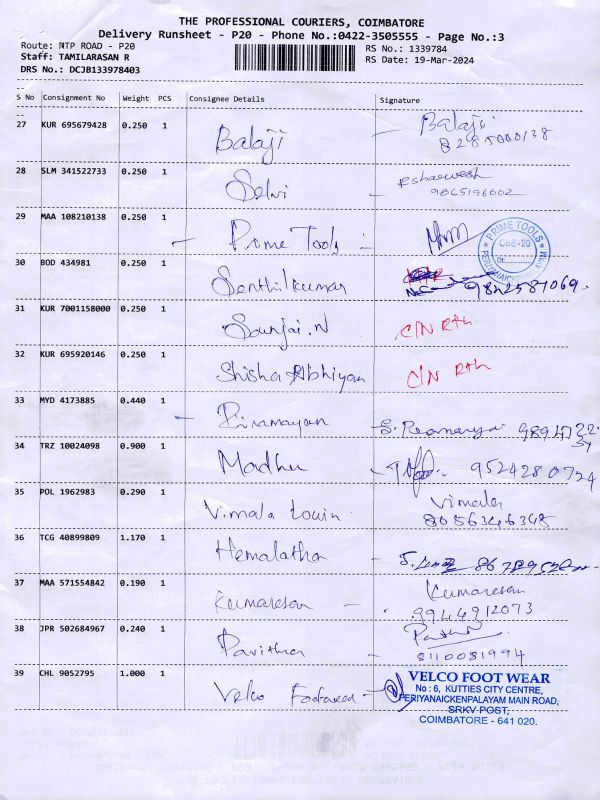 THE PROFESSIONAL COURIERS, COIMBATORE
Delivery Runsheet - P20 - Phone No.:0422-3505555 - Page No.:3
Route: MTP ROAD - P20 RS No.: 1339784
Staff: TAMILARASAN R RS Date: 19-Mar-2024
DRS No.: DCJB133978403
S No Consignment No Weight PCS Consignee Details Signature
27 KUR 695679428 0.250 1 Balaji - Balaji
8285000138
28 SLM 341522733 0.250 1 Selvi Esharwesh
9865196602
29 MAA 108210138 0.250 1 - Prime Tools -
PRIME TOOLS
CBE-20
PERIYANAICKENPALAYAM
30 BOD 434981 0.250 1 Senthilkumar 9842587069.
31 KUR 7001158000 0.250 1 Sanjai.N C/N Rth
32 KUR 695920146 0.250 1 Shisha Abhiyan C/N Rth
33 MYD 4173885 0.440 1
34 TRZ 10024098 0.900 1 Madhu - 9524280724
35 POL 1962983 0.290 1 Vimala Vimala
8056346348
36 TCG 40899809 1.170 1 Hemalatha -
37 MAA 571554842 0.190 1 Kumaresan - Kumaresan
9944912073
38 JPR 502684967 0.240 1 Pavithra
8110081994
39 CHL 9052795 1.000 1 Velco Footwear -
VELCO FOOT WEAR
No : 6, KUTTIES CITY CENTRE,
PERIYANAICKENPALAYAM MAIN ROAD,
SRKV POST,
COIMBATORE - 641 020.